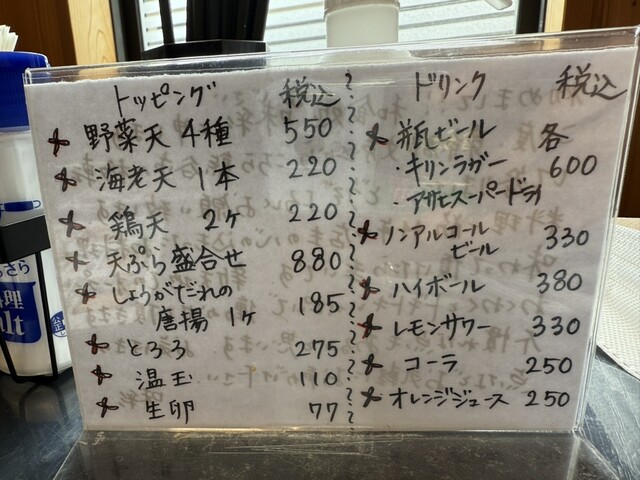 トッピング 税込
野菜天 4種 550
海老天 1本 220
鶏天 2ヶ 220
天ぷら盛合せ 880
しょうがだれの
唐揚 1ヶ 185
とろろ 275
温玉 110
生卵 77
ドリンク 税込
瓶ビール 各
・キリンラガー 600
・アサヒスーパードライ
ノンアルコール
ビール 330
ハイボール 380
レモンサワー 330
コーラ 250
オレンジジュース 250